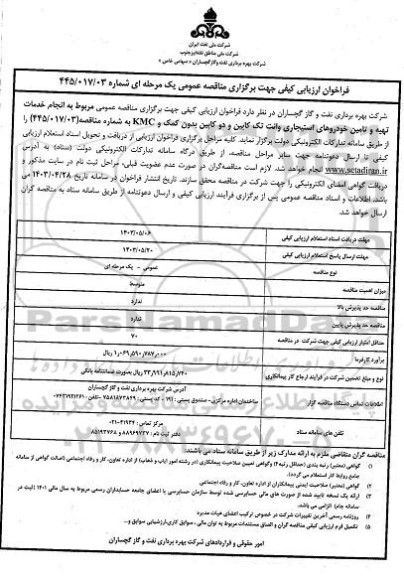 شرکت ملی نفت ایران
شرکت ملی مناطق نفتخیز جنوب
شرکت بهره برداری نفت و گاز گچساران «سهامی خاص»
فراخوان ارزیابی کیفی جهت برگزاری مناقصه عمومی یک مرحله ای شماره ۴۴۵/۰۱۷/۰۳
شرکت بهره برداری نفت و گاز گچساران در نظر دارد فراخوان ارزیابی کیفی جهت برگزاری مناقصه عمومی مربوط به انجام خدمات
تهیه و تامین خودروهای استیجاری وانت تک کابین و دو کابین بدون کمک و KMC به شماره مناقصه(۴۴۵/۰۱۷/۰۳) را
از طریق سامانه تدارکات الکترونیکی دولت برگزار نماید. کلیه مراحل برگزاری فراخوان ارزیابی از دریافت و تحویل اسناد استعلام ارزیابی
کیفی تا ارسال دعوتنامه جهت سایر مراحل مناقصه، از طریق درگاه سامانه تدارکات الکترونیکی دولت (ستاد) به آدرس
www.setadiran.ir انجام خواهد شد. لازم است مناقصه‌گران در صورت عدم عضویت قبلی، مراحل ثبت نام در سایت مذکور و
دریافت گواهی امضای الکترونیکی را جهت شرکت در مناقصه محقق سازند. تاریخ انتشار فراخوان در سامانه تاریخ ۱۴۰۳/۰۴/۲۸ می
باشد. اطلاعات و اسناد مناقصه عمومی پس از برگزاری فرآیند ارزیابی کیفی و ارسال دعوتنامه از طریق سامانه ستاد به مناقصه گران
ارسال خواهد شد.
مهلت دریافت اسناد استعلام ارزیابی کیفی ۱۴۰۳/۰۵/۰۶
مهلت ارسال پاسخ استعلام ارزیابی کیفی ۱۴۰۳/۰۵/۲۰
نوع مناقصه عمومی - یک مرحله ای
میزان اهمیت مناقصه متوسط
مناقصه حد پذیرش بالا ندارد
مناقصه حد پذیرش پایین ندارد
حداقل امتیاز ارزیابی کیفی جهت شرکت در مناقصه ۷۰
برآورد کارفرما ۱,۰۶۹,۵۹۰,۷۸۷,۰۰۰ ریال
نوع و مبلغ تضمین شرکت در فرآیند ارجاع کار پیمانکاری ۲۳,۹۹۱,۸۱۵,۷۴۰ ریال بصورت ضمانتنامه بانکی
اطلاعات تماس دستگاه مناقصه گزار آدرس شرکت بهره برداری نفت و گاز گچساران
تلفن های سامانه ستاد مرکز تماس: ۴۱۹۳۴-۰۲۱
دفتر ثبت نام: ۸۸۹۶۹۷۳۷ و ۸۵۱۹۳۷۶۸
مناقصه گران متقاضی ملزم به ارائه مدارک زیر از طریق سامانه ستاد می باشند:
۲) گواهی (معتبر) صلاحیت ایمنی پیمانکاران از اداره تعاون، کار و رفاه اجتماعی
۴) روزنامه رسمی آخرین تغییرات شرکت در خصوص ترکیب اعضای هیات مدیره
امور حقوقی و قراردادهای شرکت بهره برداری نفت و گاز گچساران